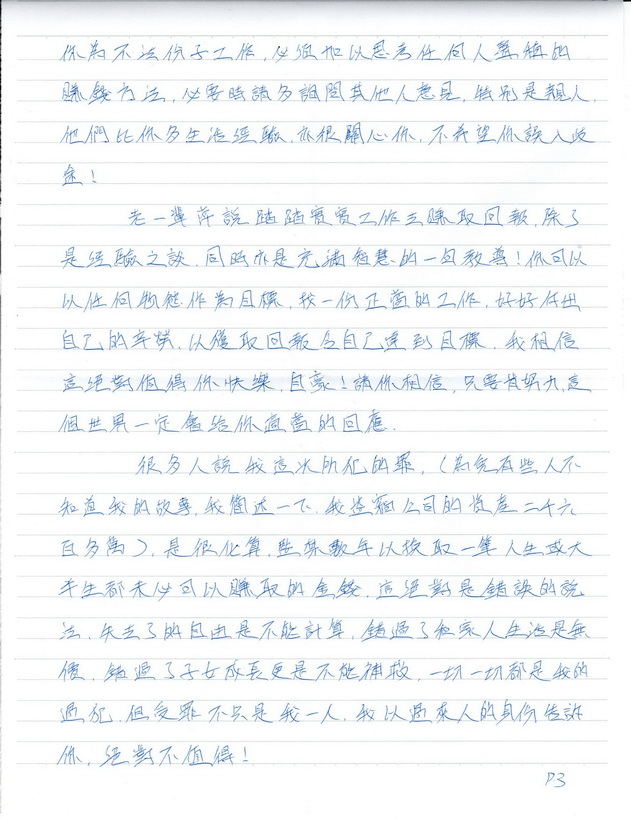 你為不法份子工作，必須加以思考任何人聲稱的
賺錢方法，必要時請多詢問其他人意見，特別是親人，
他們比你多生活經驗，亦很關心你，不希望你誤入歧
途！
老一輩常說踏踏實實工作去賺取回報，除了
是經驗之談，同時亦是充滿智慧的一句教導！你可以
以任何物慾作為目標，找一份正當的工作，好好付出
自己的辛勞，以獲取回報令自己達到目標，我相信
這絕對值得你快樂，自豪！請你相信，只要肯努力，這
個世界一定會給你適當的回應。
很多人說我這次所犯的罪，（為免有些人不
知道我的故事，我簡述一下，我盜竊公司的資產二千六
百多萬），是很化算，監禁數年以換取一筆人生或大
半生都未必可以賺取的金錢，這絕對是錯誤的說
法，失去了的自由是不能計算，錯過了和家人生活是無
價，錯過了子女成長更是不能補救，一切一切都是我的
過犯，但受罪不只是我一人，我以過來人的身份告訴
你，絕對不值得！
P3